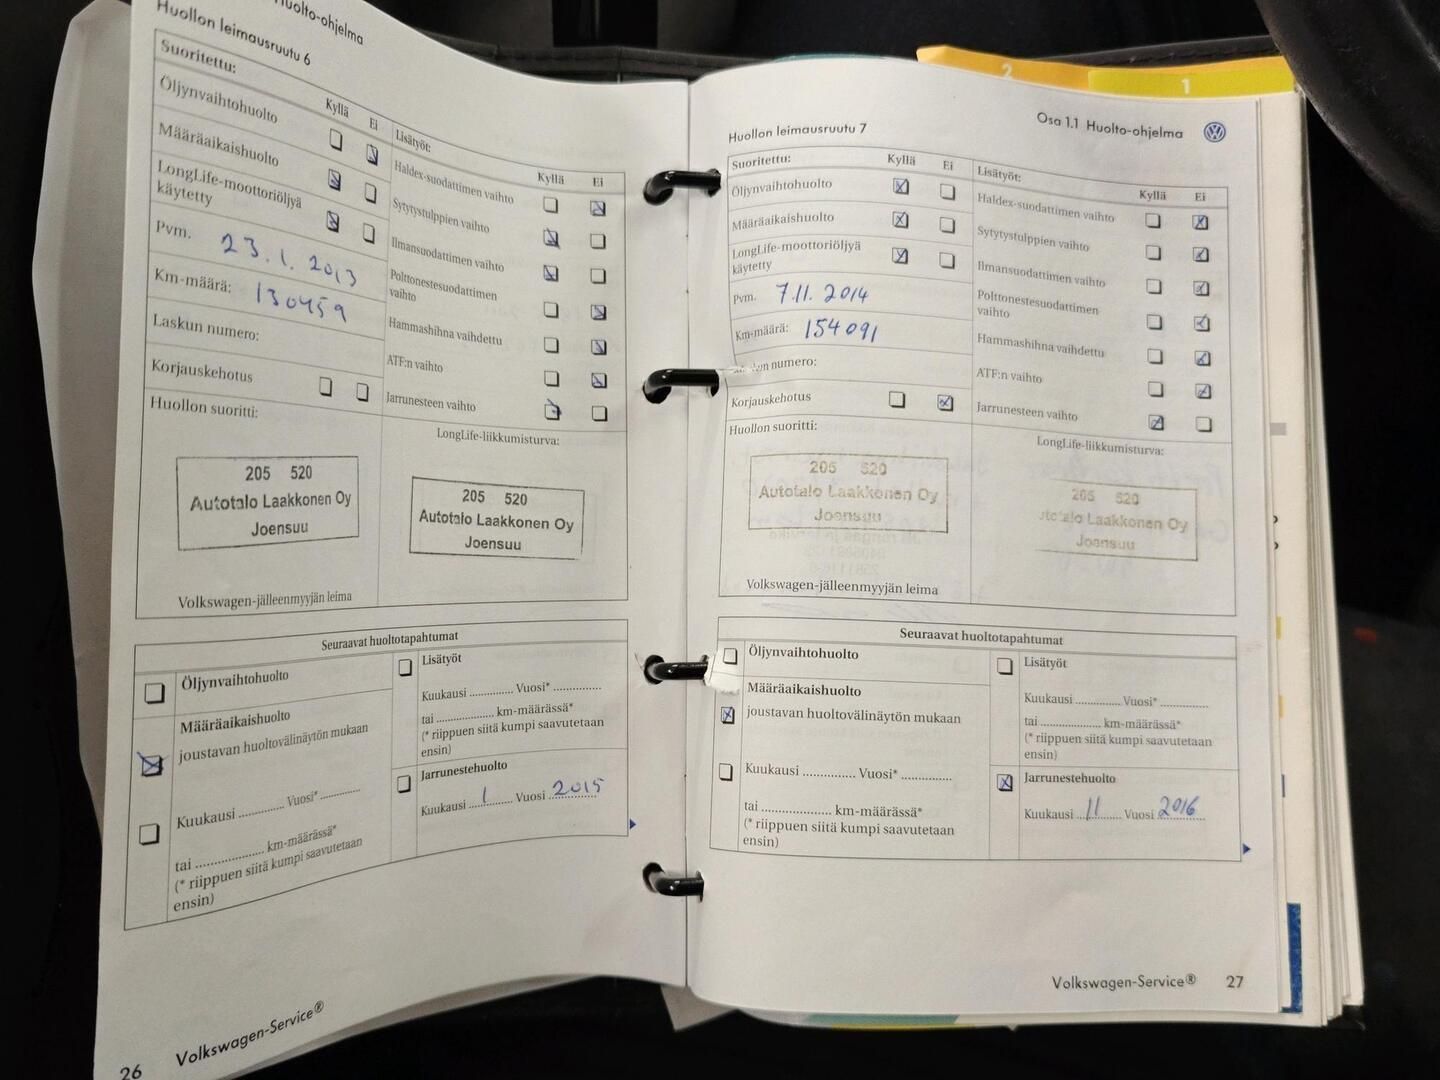 Huolto-ohjelma
Huollon leimausruutu 6
Suoritettu:
Kyllä Ei
Öljynvaihtohuolto
Määräaikaishuolto
LongLife-moottoriöljyä
käytetty
Pvm. 23.1.2013
Km-määrä: 130459
Laskun numero:
Korjauskehotus
Huollon suoritti:
205 520
Autotalo Laakkonen Oy
Joensuu
Volkswagen-jälleenmyyjän leima
Lisätyöt:
Kyllä Ei
Haldex-suodattimen vaihto
Sytytystulppien vaihto
Ilmansuodattimen vaihto
Polttonestesuodattimen
vaihto
Hammashihna vaihdettu
ATF:n vaihto
Jarrunesteen vaihto
LongLife-liikkumisturva:
205 520
Autotalo Laakkonen Oy
Joensuu
Seuraavat huoltotapahtumat
Öljynvaihtohuolto
Määräaikaishuolto
joustavan huoltovälinäytön mukaan
Kuukausi .............. Vuosi* ..............
tai .................... km-määrässä*
(* riippuen siitä kumpi saavutetaan
ensin)
Lisätyöt
Kuukausi .............. Vuosi* ..............
tai .................... km-määrässä*
(* riippuen siitä kumpi saavutetaan
ensin)
Jarrunestehuolto
Kuukausi 1 Vuosi 2015
26 Volkswagen-Service®
Osa 1.1 Huolto-ohjelma
Huollon leimausruutu 7
Suoritettu:
Kyllä Ei
Öljynvaihtohuolto
Määräaikaishuolto
LongLife-moottoriöljyä
käytetty
Pvm. 7.11.2014
Km-määrä: 154091
numero:
Korjauskehotus
Huollon suoritti:
205 520
Autotalo Laakkonen Oy
Joensuu
Volkswagen-jälleenmyyjän leima
Lisätyöt:
Kyllä Ei
Haldex-suodattimen vaihto
Sytytystulppien vaihto
Ilmansuodattimen vaihto
Polttonestesuodattimen
vaihto
Hammashihna vaihdettu
ATF:n vaihto
Jarrunesteen vaihto
LongLife-liikkumisturva:
205 520
Laakkonen Oy
Joensuu
Seuraavat huoltotapahtumat
Öljynvaihtohuolto
Määräaikaishuolto
joustavan huoltovälinäytön mukaan
Kuukausi .............. Vuosi* ..............
tai .................... km-määrässä*
(* riippuen siitä kumpi saavutetaan
ensin)
Lisätyöt
Kuukausi .............. Vuosi* ..............
tai .................... km-määrässä*
(* riippuen siitä kumpi saavutetaan
ensin)
Jarrunestehuolto
Kuukausi 11 Vuosi 2016
Volkswagen-Service® 27
2
1